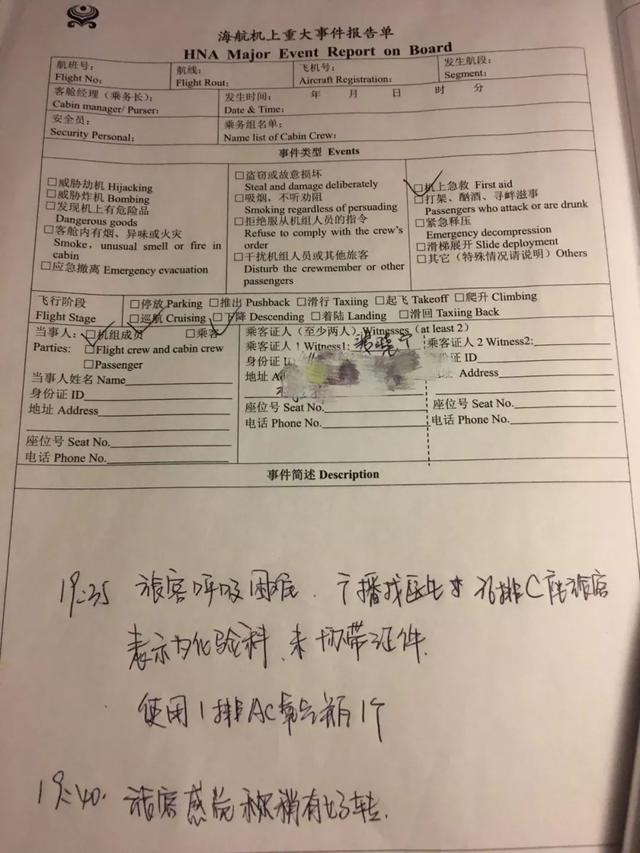 海航机上重大事件报告单
HNA Major Event Report on Board
航班号： 航线： 飞机号： 发生航段：
Flight No: Flight Rout: Aircraft Registration: Segment:
客舱经理（乘务长）： 发生时间： 年 月 日 时 分
Cabin manager/ Purser: Date & Time:
安全员： 乘务组名单：
Security Personal: Name list of Cabin Crew:
事件类型 Events
□威胁劫机 Hijacking
□威胁炸机 Bombing
□发现机上有危险品
Dangerous goods
□客舱内有烟、异味或火灾
Smoke, unusual smell or fire in
cabin
□应急撤离 Emergency evacuation
□盗窃或故意损坏
Steal and damage deliberately
□吸烟，不听劝阻
Smoking regardless of persuading
□拒绝服从机组人员的指令
Refuse to comply with the crew's
order
□干扰机组人员或其他旅客
Disturb the crewmember or other
passengers
□机上急救 First aid
□打架、酗酒、寻衅滋事
Passengers who attack or are drunk
□紧急释压
Emergency decompression
□滑梯展开 Slide deployment
□其它（特殊情况请说明）Others
飞行阶段 □停放 Parking □推出 Pushback □滑行 Taxiing □起飞 Takeoff □爬升 Climbing
Flight Stage □巡航 Cruising □下降 Descending □着陆 Landing □滑回 Taxiing Back
当事人： □机组成员 □乘客
Parties: □Flight crew and cabin crew
□Passenger
当事人姓名 Name
身份证 ID
地址 Address
座位号 Seat No.
电话 Phone No.
乘客证人（至少两人）Witnesses (at least 2)
乘客证人 1 Witness1:
身份证
地址
座位号 Seat No.
电话 Phone No.
乘客证人 2 Witness2:
身份证 ID
地址 Address
座位号 Seat No.
电话 Phone No.
事件简述 Description
19:35 旅客呼吸困难．广播找医生 排C座旅客
表示为化验科、未携带证件.
使用1排AC氧气瓶1个
19:40. 旅客感觉 稍有好转.